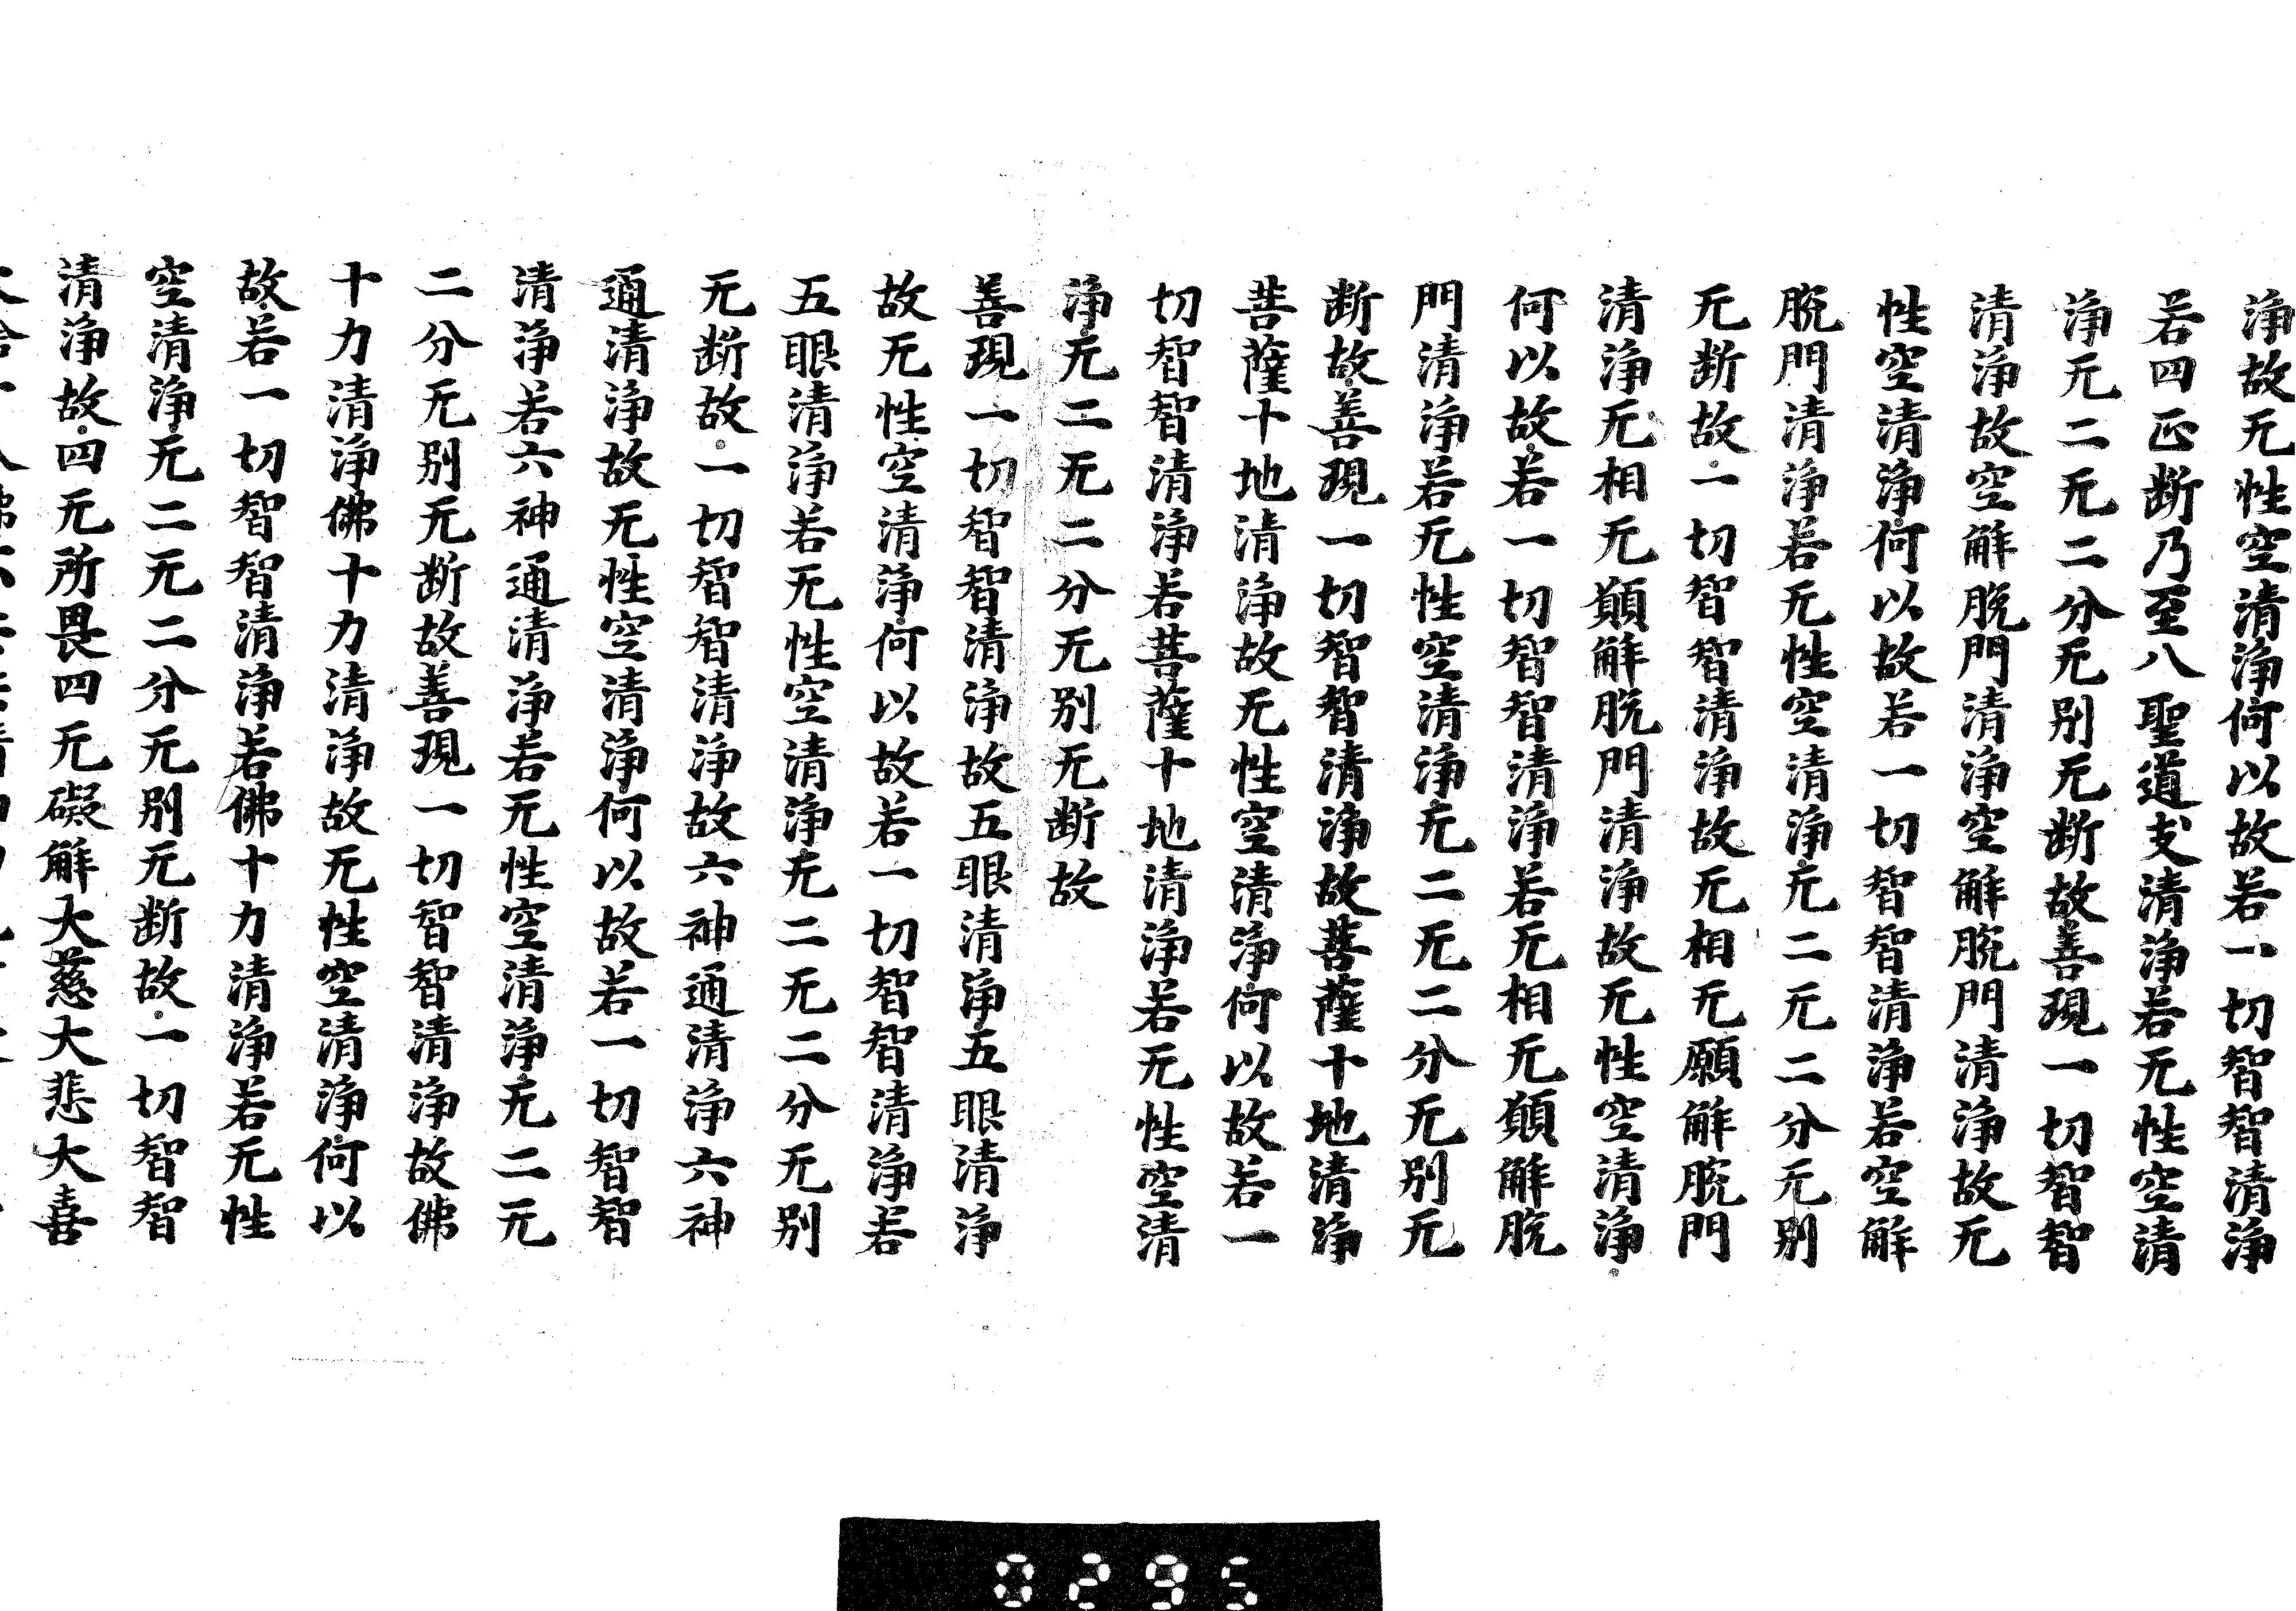 淨故无性空清淨何以故若一切智智清淨
若四正断乃至八聖道支清淨若无性空清
淨无二无二分无別无断故善現一切智智
清淨故空解脫門清淨空解脫門清淨故无
性空清淨何以故若一切智智清淨若空解
脫門清淨若无性空清淨无二无二分无別
无断故一切智智清淨故无相无願解脫門
清淨无相无願解脫門清淨故无性空清淨
何以故若一切智智清淨若无相无願解脫
門清淨若无性空清淨无二无二分无別无
断故善現一切智智清淨故菩薩十地清淨
菩薩十地清淨故无性空清淨何以故若一
切智智清淨若菩薩十地清淨若无性空清
淨无二无二分无別无断故
善現一切智智清淨故五眼清淨五眼清淨
故无性空清淨何以故若一切智智清淨若
五眼清淨若无性空清淨无二无二分无別
无断故一切智智清淨故六神通清淨六神
通清淨故无性空清淨何以故若一切智智
清淨若六神通清淨若无性空清淨无二无
二分无別无断故善現一切智智清淨故佛
十力清淨佛十力清淨故无性空清淨何以
故若一切智智清淨若佛十力清淨若无性
空清淨无二无二分无別无断故一切智智
清淨故四无所畏四无礙解大慈大悲大喜
0295